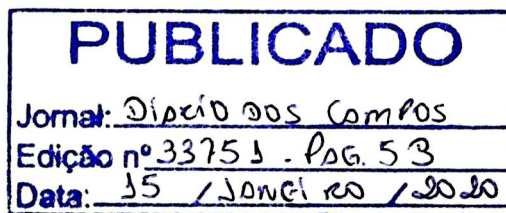 PUBLICADO
Jornal: DIÁRIO DOS CAMPOS
Edição nº 33751 - PAG. 53
Data: 15 / JANEIRO / 2020